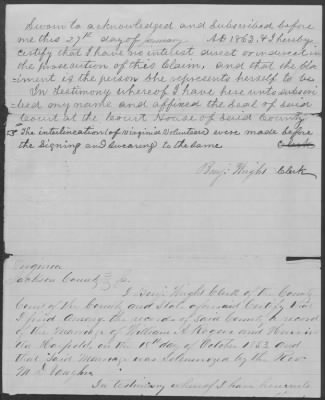 Sworn to acknowledged and Subscribed before
me this 27th day of January AD 1863, & I hereby
certify that I have no interest direct or indirect in
the prosecution of this Claim, and that the Cla-
iment is the person She represents herself to be
In Testimony whereof I have here unto subscri-
bed my name and affixed the Seal of said
Court at the Court House of said County
The interlineation (of Virginia Volunteers) were made before
the Signing and Swearing to the same Clerk
Benj. Wright Clerk
Virginia
Jackson County
I Benj. Wright Clerk of the County
Court of the County and State aforesaid Certify that
I find Among the records of said County a record
of the Marriage of William A Rogers and
on the 18th day of October 1853 and
that Said Marriage was Solemnized by the Rev
M
In testimony whereof I have hereunto